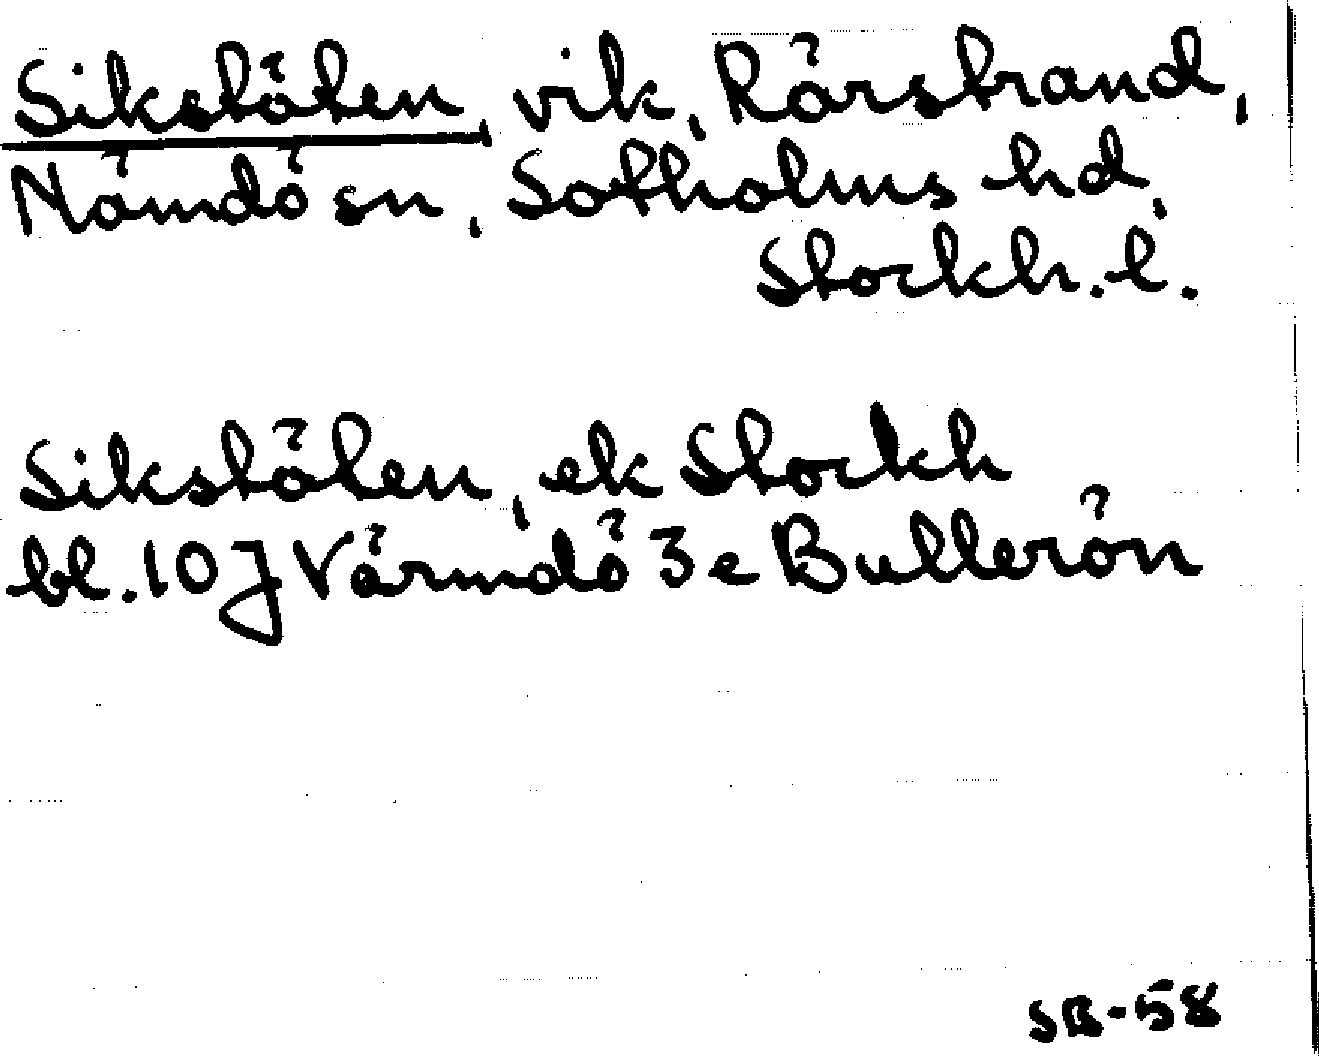 Sikstöten, vik, Rörstrand,
Nämdö sn, Sotholms hd,
Stockh. l.
Sikstöten, ek Stockh
bl. 10J Värmdö 3e Bullerön
SB-58